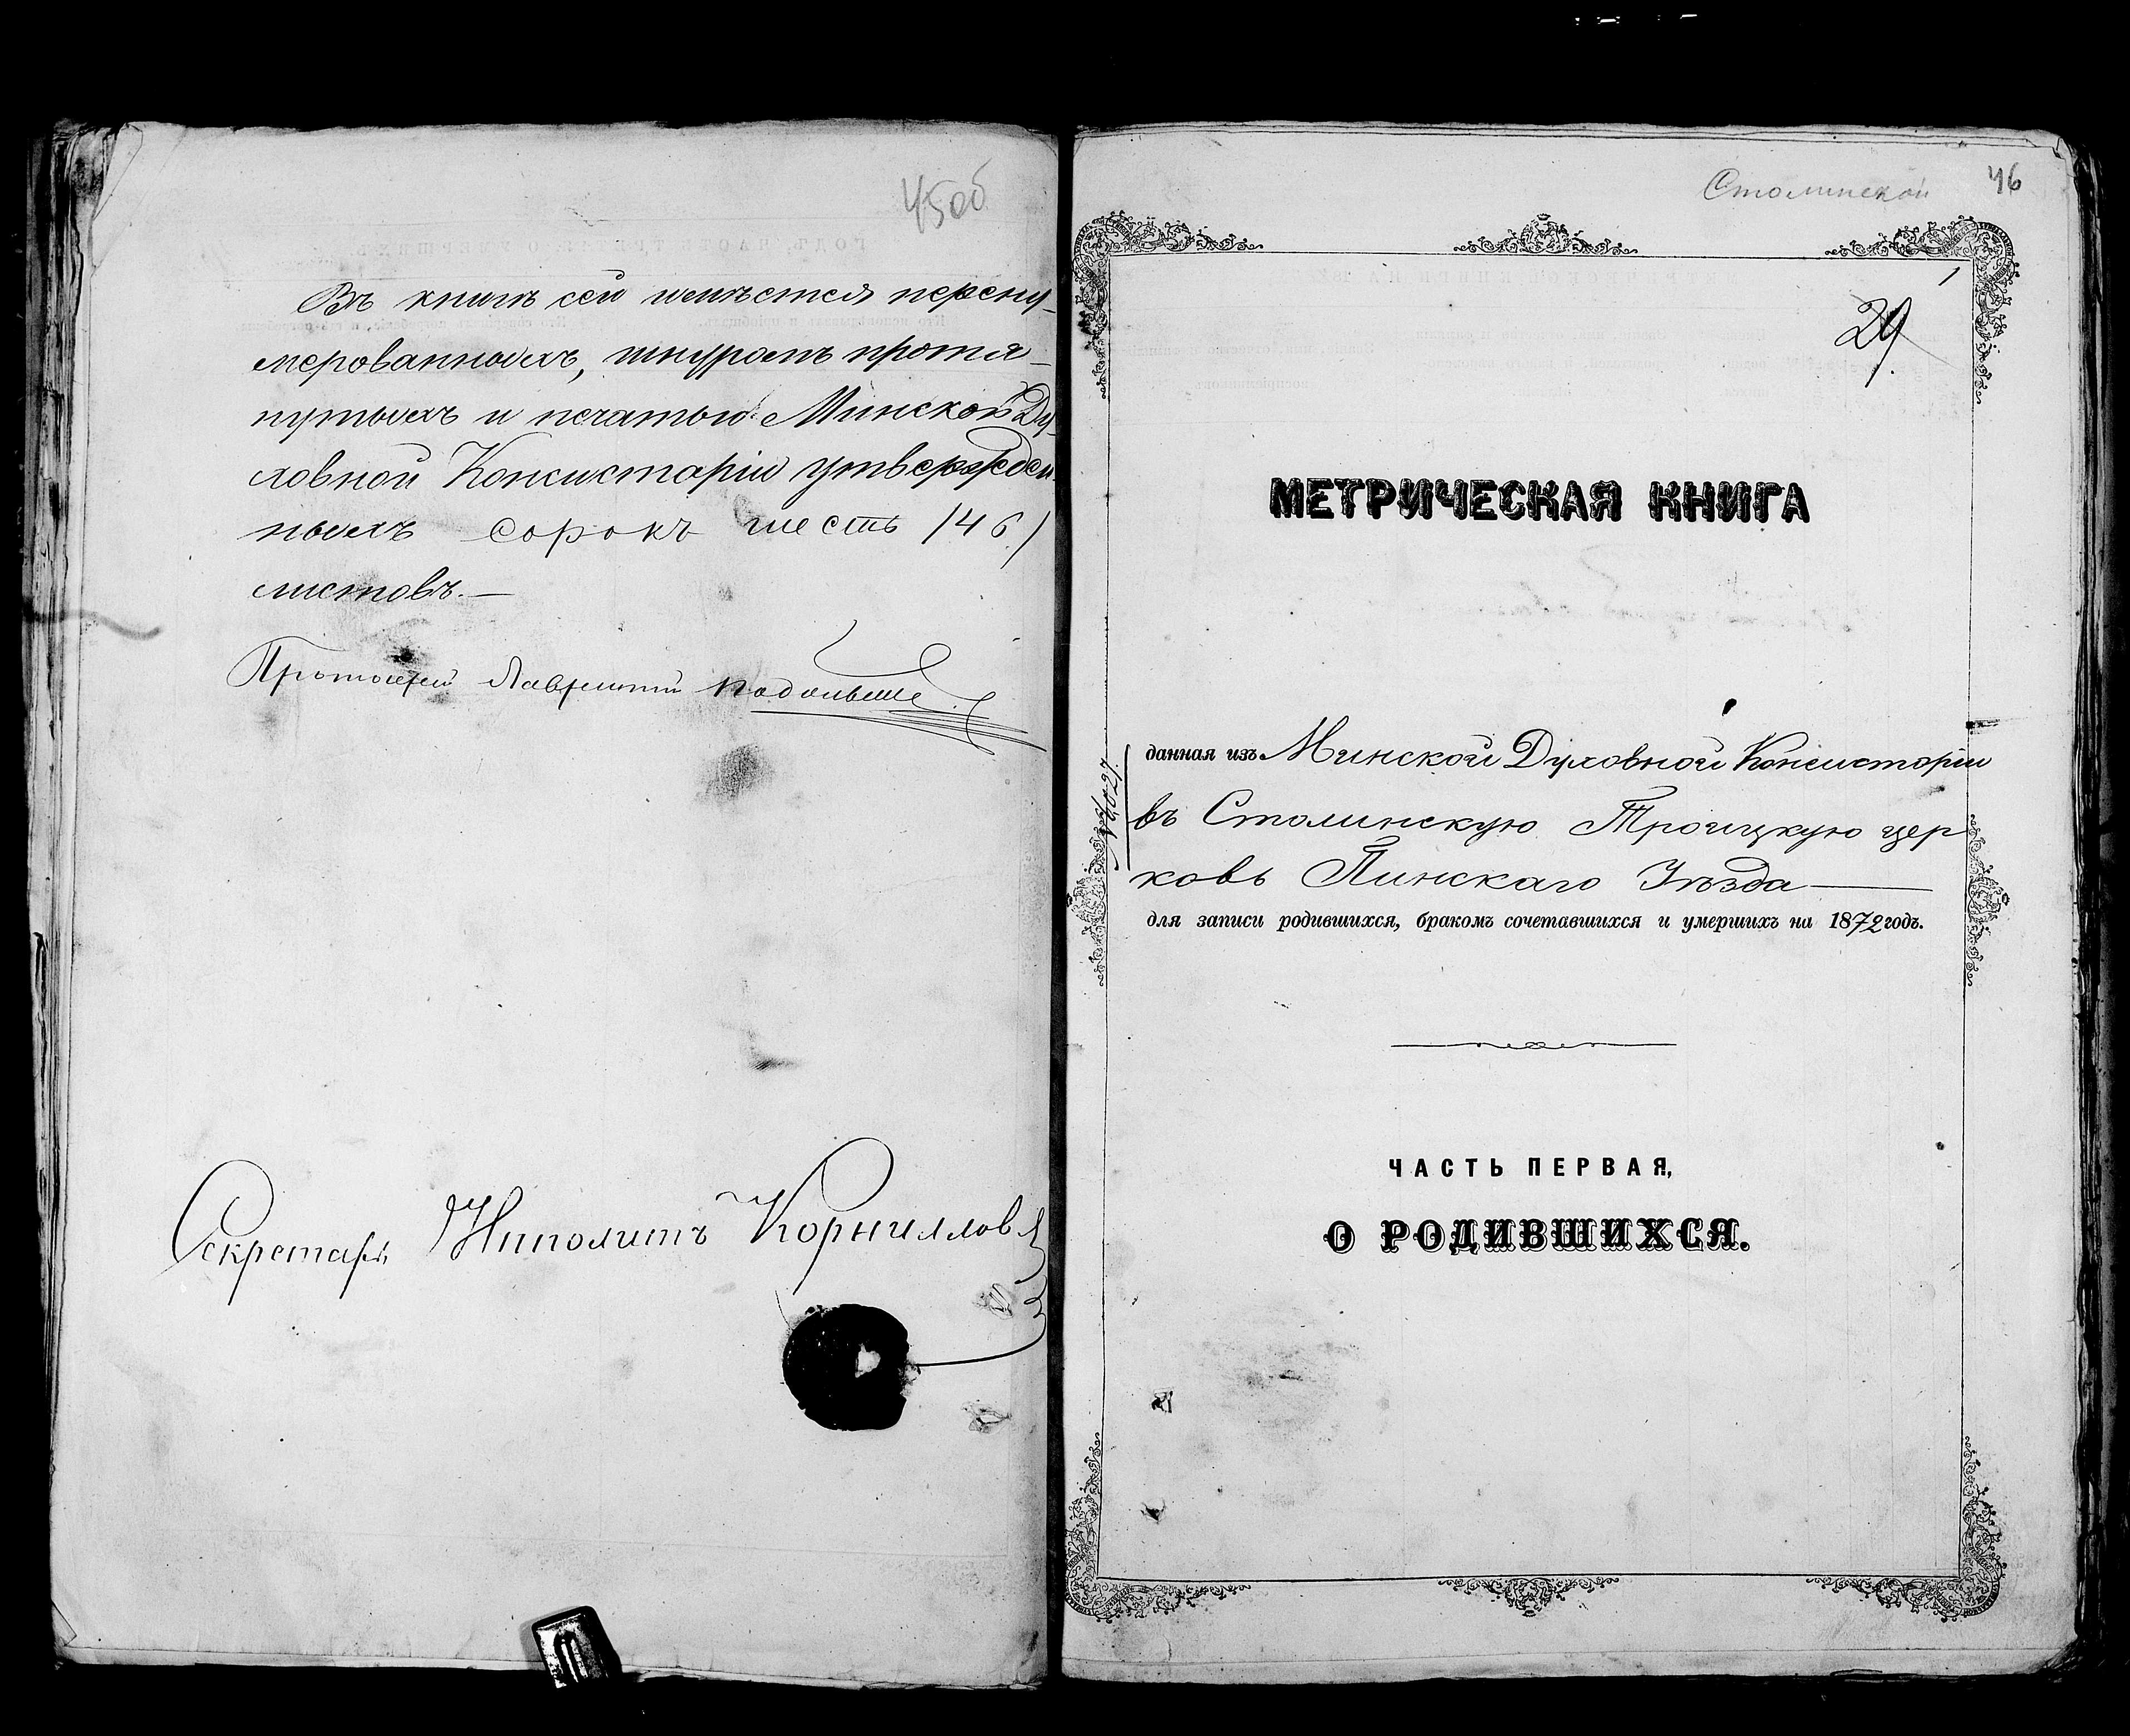 45об
Въ книгѣ сей имѣется перену-
мерованныхъ, шнуромъ протя-
нутыхъ и печатью Минской Ду-
ховной Консисторіи утвержден-
ныхъ сорокъ шесть /46/
листовъ.—
Протоіерей Лаврентій
Секретарь Ипполитъ Корниловъ
Столинской 46
1
29
МЕТРИЧЕСКАЯ КНИГА
данная изъ Минской Духовной Консисторіи
въ Столинскую Троицкую цер
ковь Пинскаго Уѣзда —
для записи родившихся, бракомъ сочетавшихся и умершихъ на 1872 годъ.
ЧАСТЬ ПЕРВАЯ,
О РОДИВШИХСЯ.